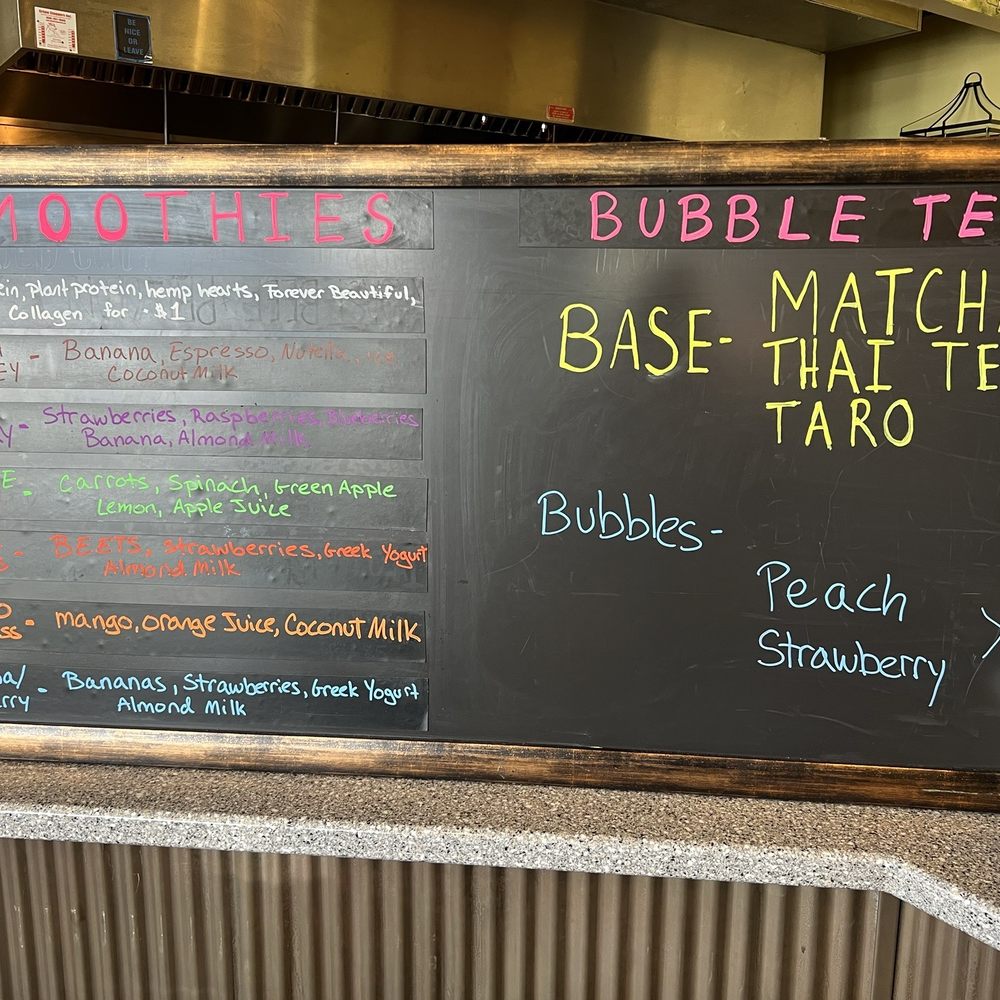 BE NICE
OR
LEAVE
MOOTHIES
ein, Plant protein, hemp hearts, Forever Beautiful,
Collagen for .$1
EY - Banana, Espresso, Nutella,
Coconut Milk
Y - Strawberries, Raspberries, Blueberries
Banana, Almond Milk
E - Carrots, Spinach, Green Apple
Lemon, Apple Juice
S - BEETS, Strawberries, Greek Yogurt
Almond Milk
O
ss - mango, orange Juice, Coconut Milk
a/
rry - Bananas, Strawberries, Greek Yogurt
Almond Milk
BUBBLE TE
BASE- MATCH
THAI TE
TARO
Bubbles-
Peach
Strawberry